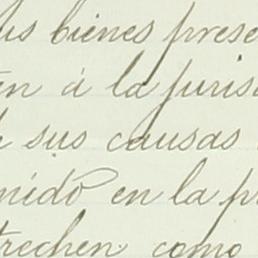 us bienes prese
en á la juris
e sus causas
nido en la p
trechen como